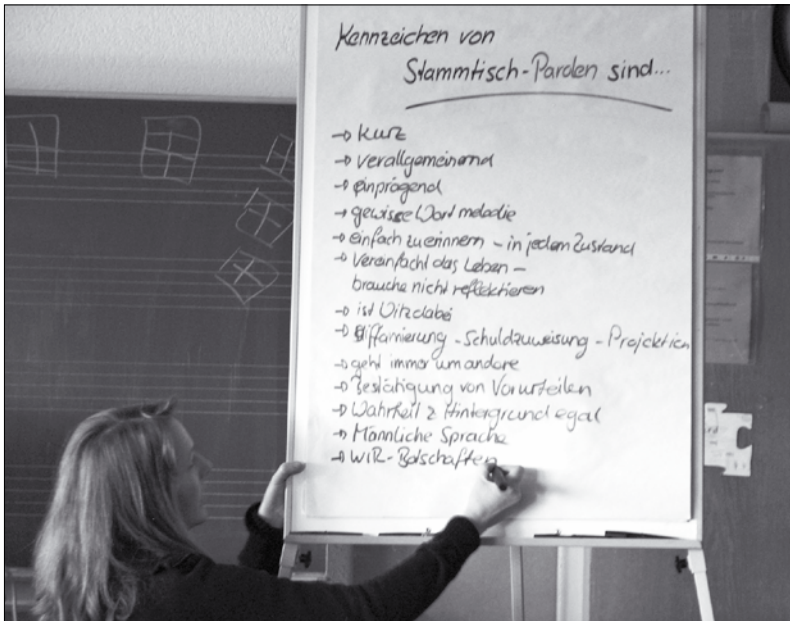 Kennzeichen von
Stammtisch-Parolen sind...
→ kurz
→ verallgemeinernd
→ einprägend
→ gewisse Wortmelodie
→ einfach zu erinnern – in jedem Zustand
→ Vereinfacht das Leben –
brauche nicht reflektieren
→ ist Witz dabei
→ Diffamierung - Schuldzuweisung - Projektion
→ geht immer um andere
→ Bestätigung von Vorurteilen
→ Wahrheit & Hintergrund egal
→ Männliche Sprache
→ WIR-Botschaften